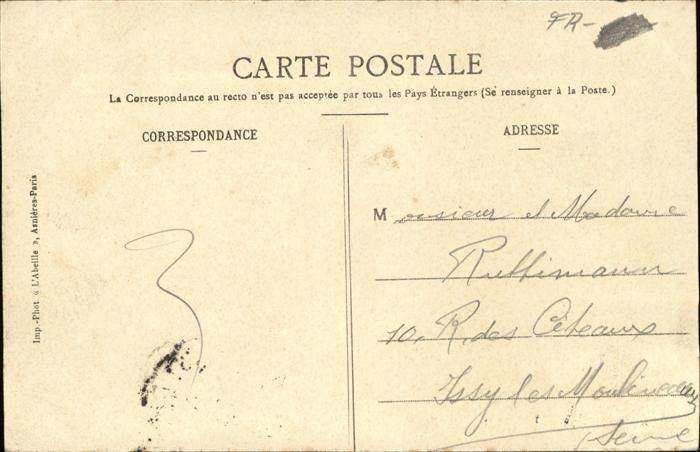 FR-
CARTE POSTALE
La Correspondance au recto n'est pas acceptée par tous les Pays Étrangers (Se renseigner à la Poste.)
CORRESPONDANCE
ADRESSE
Imp.-Phot « L'Abeille », Asnières-Paris
3
Monsieur et Madame
Ruttimann
10, R. des Côteaux
Issy les Moulineaux
Seine